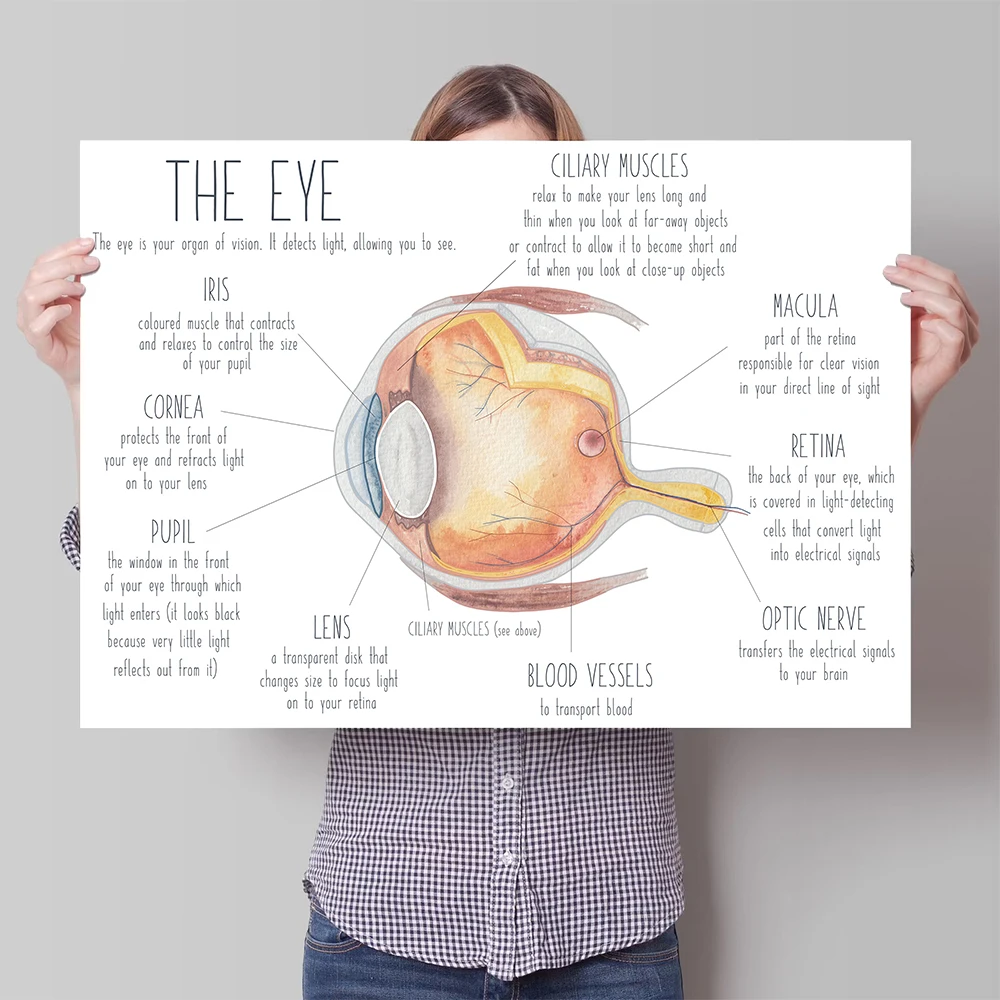 THE EYE
The eye is your organ of vision. It detects light, allowing you to see.
CILIARY MUSCLES
relax to make your lens long and
thin when you look at far-away objects
or contract to allow it to become short and
fat when you look at close-up objects
IRIS
coloured muscle that contracts
and relaxes to control the size
of your pupil
CORNEA
protects the front of
your eye and refracts light
on to your lens
PUPIL
the window in the front
of your eye through which
light enters (it looks black
because very little light
reflects out from it)
LENS
a transparent disk that
changes size to focus light
on to your retina
CILIARY MUSCLES (see above)
BLOOD VESSELS
to transport blood
MACULA
part of the retina
responsible for clear vision
in your direct line of sight
RETINA
the back of your eye, which
is covered in light-detecting
cells that convert light
into electrical signals
OPTIC NERVE
transfers the electrical signals
to your brain